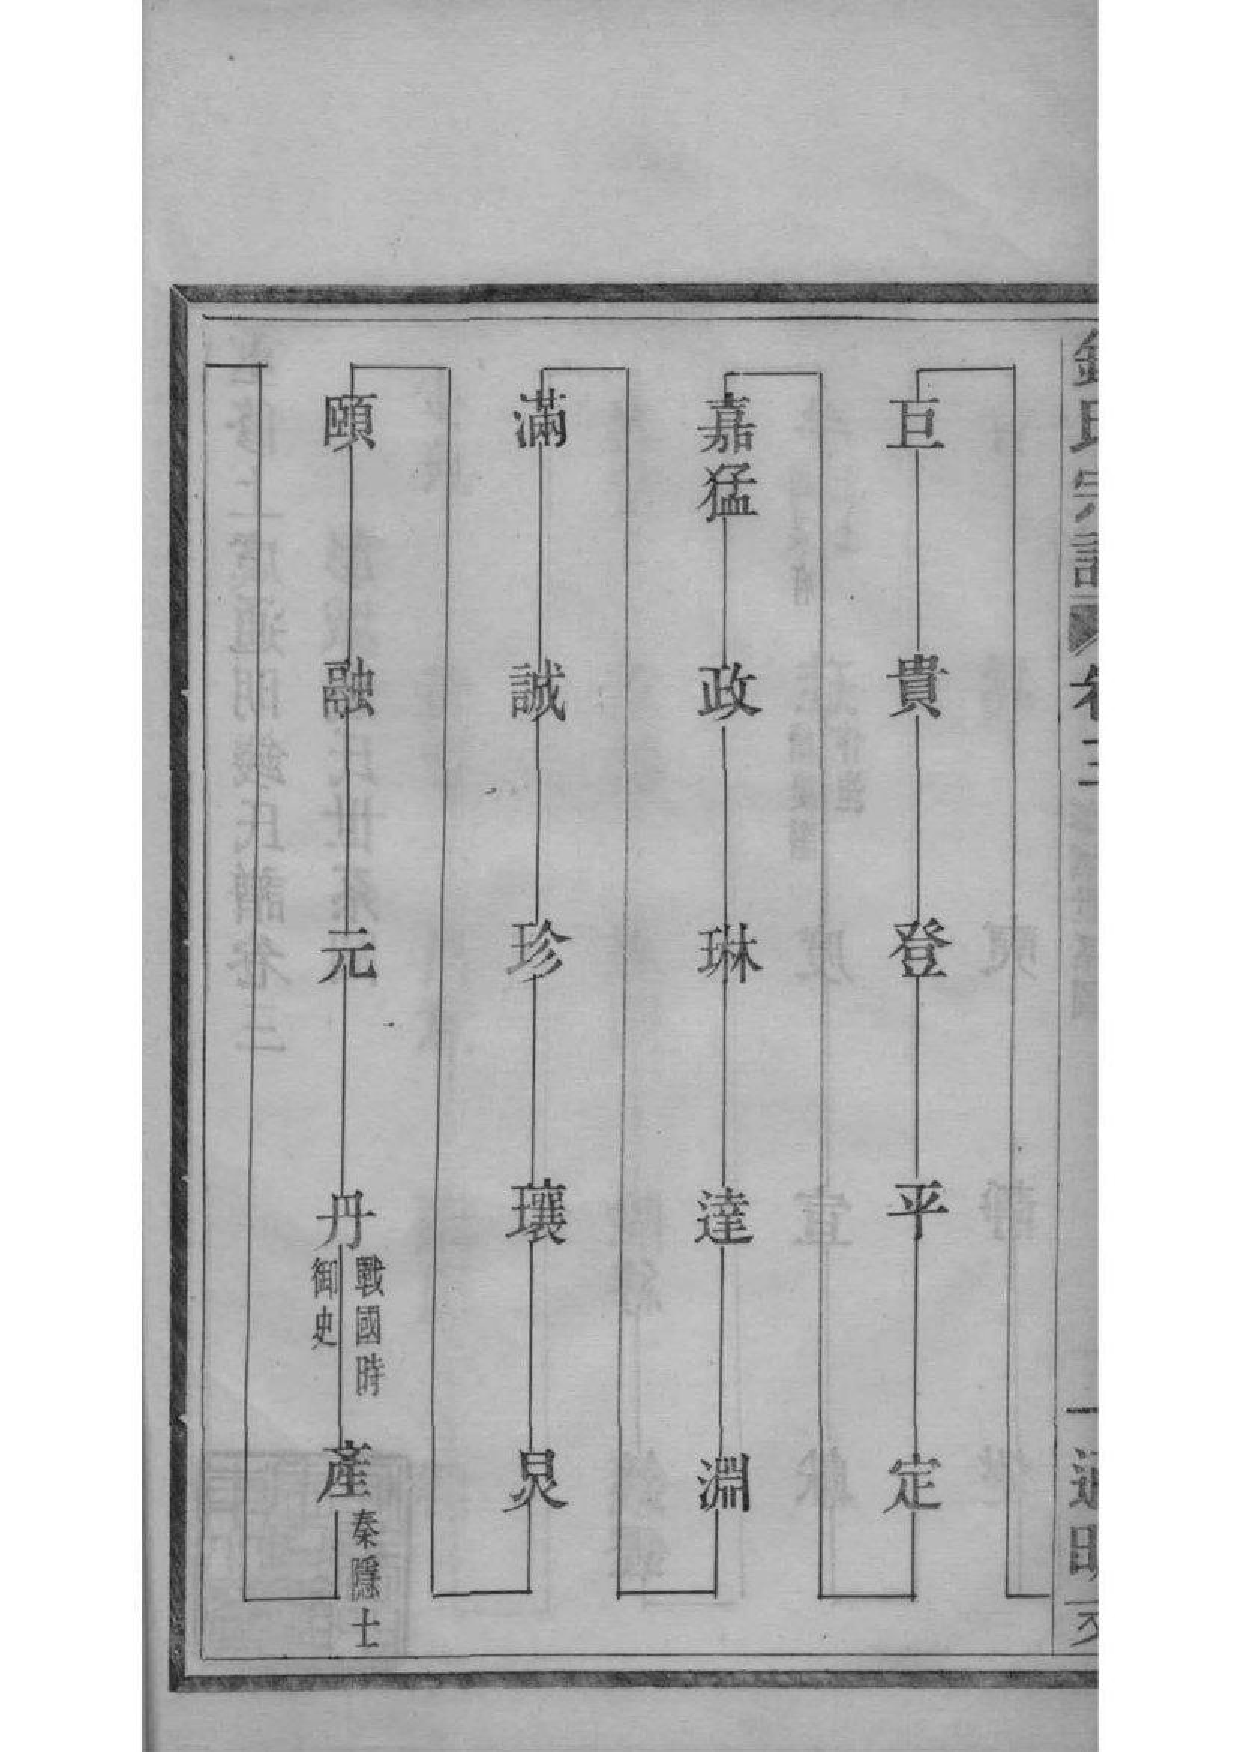 錢氏宗譜 卷三 一 通明
巨 貴 登 平 定
嘉猛 政 琳 達 淵
滿 誠 珍 瓖 炅
頤 融 元 丹 戰國時御史 產 秦隱士